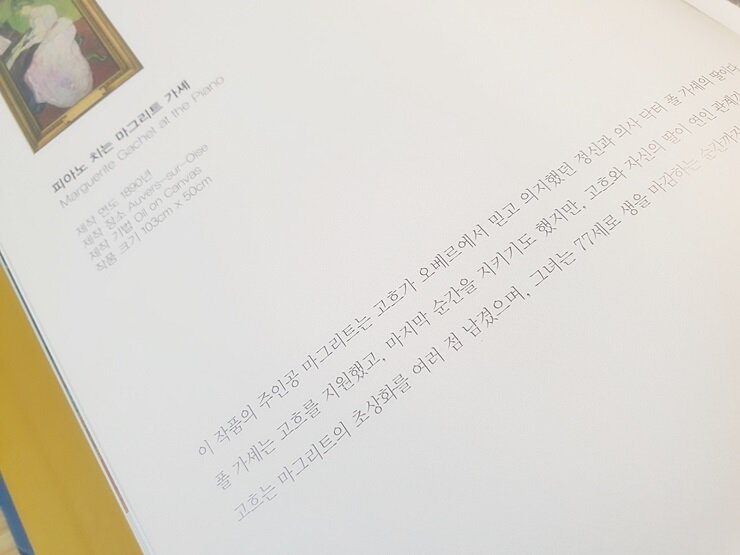 피아노 치는 마그리트 가셰
Marguerite Gachet at the Piano
제작 연도 1890년
제작 장소 Auvers-sur-Oise
제작 기법 Oil on Canvas
작품 크기 103cm × 50cm
이 작품의 주인공 마그리트는 고흐가 오베르에서 믿고 의지했던 정신과 의사 닥터 폴 가셰의 딸이다.
폴 가셰는 고흐를 지원했고, 마지막 순간을 지키기도 했지만, 고흐와 자신의 딸이 연인 관계가
고흐는 마그리트의 초상화를 여러 점 남겼으며, 그녀는 77세로 생을 마감하는 순간까지